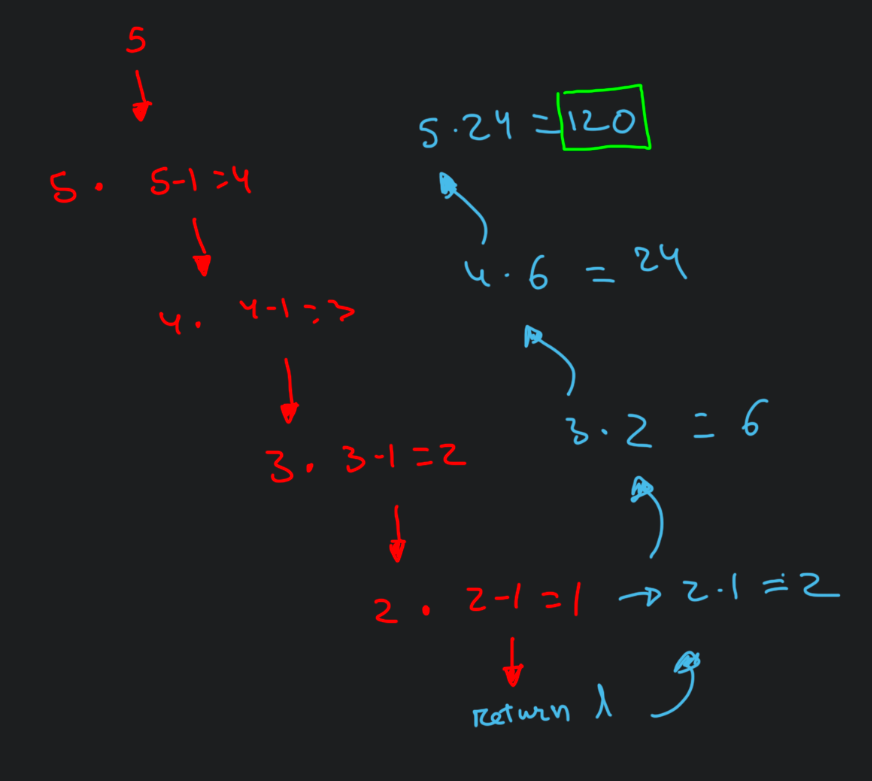 5
5 · 5-1=4
4 · 4-1=3
3 · 3-1=2
2 · 2-1=1 → 2·1=2
return 1
3·2 = 6
4·6 = 24
5·24 = 120